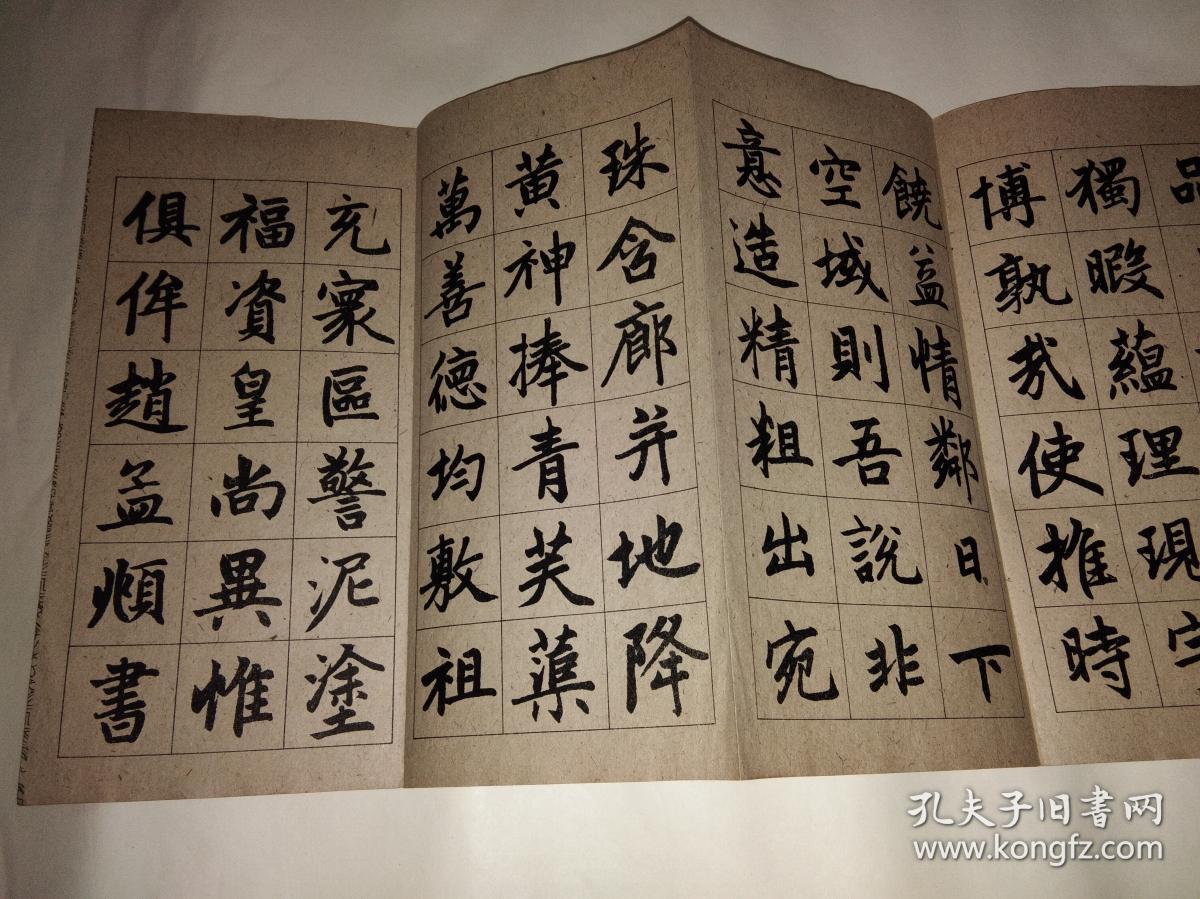 品
獨暇蘊理現宇
博孰哉使推時
饒益情鄰日下
空域則吾説非
意造精粗出宛
珠含廊并地降
黄神捧青芙蕖
萬善德均敷祖
充寰區警泥塗
福資皇尚異惟
俱侔趙孟頫書
孔夫子旧書网
www.kongfz.com